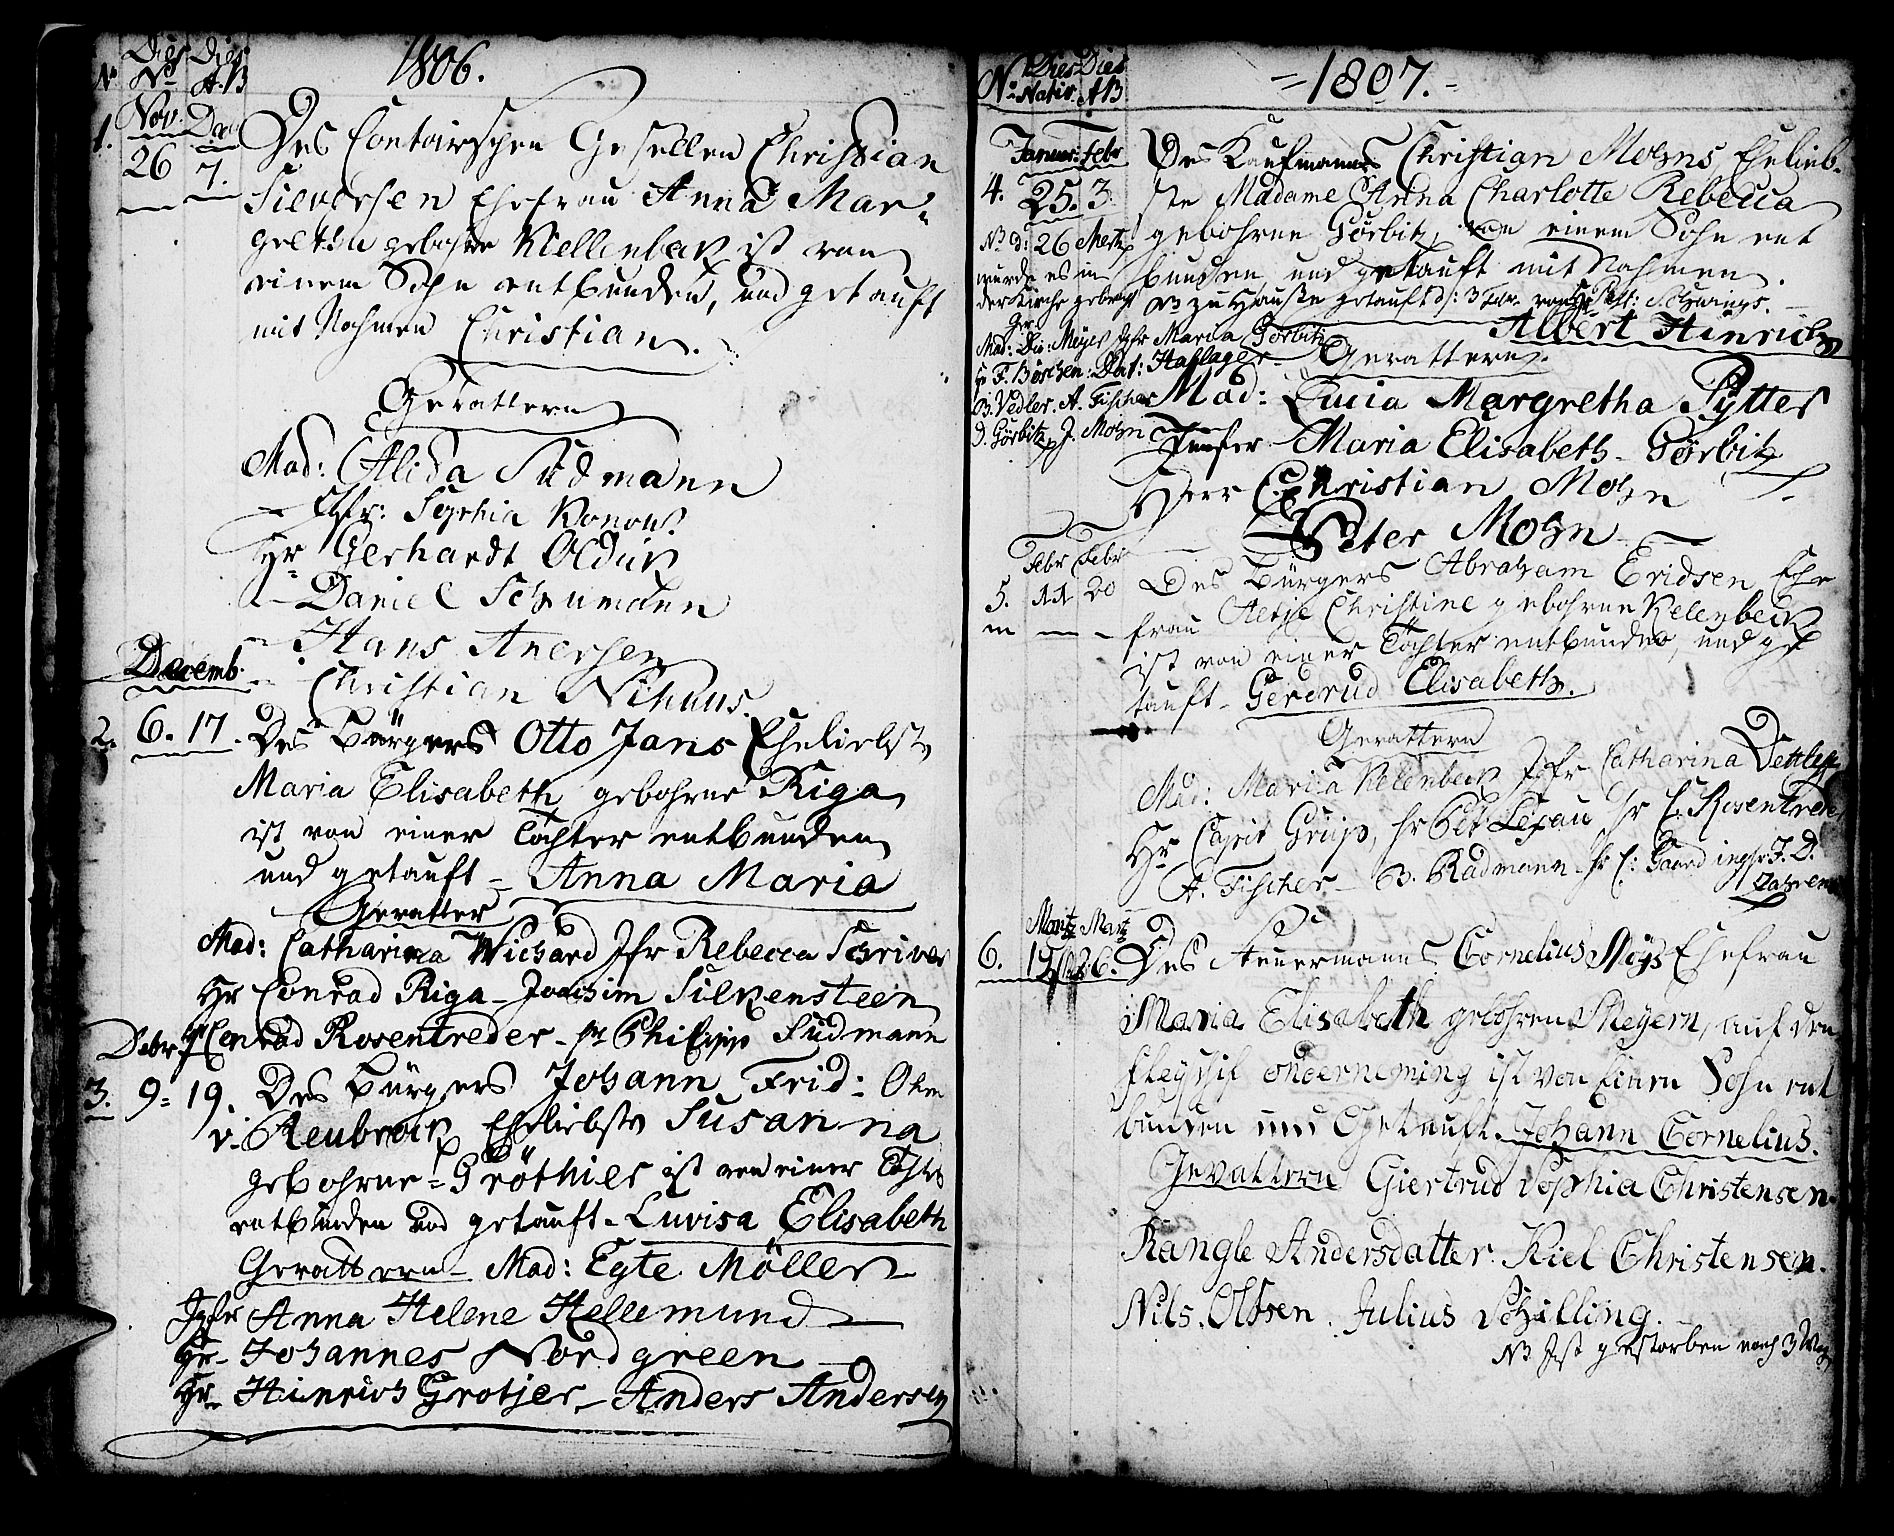 N Dies Nat Dies A.B 1806.
1. Nov. 26 Decb 7. Des Contoirschen Gesellen Christian
Sieversen Ehefrau Anna Mar-
grethe gebohrne Kellenbek ist von
einem Sohn entbunden, und getauft
mit Nahmen Christian.
Gevattern
Mad: Alida Südmann
Jgfr: Sophia Konow.
Hr Gerhardt
Daniel Schumann
Hans Anersen
Christian Nihuus.
Decemb.
2. 6. 17. Des Bürgers Otto Jans Ehelieb ste
Maria Elisabeth gebohrne Riga,
ist von einer Tochter entbunden
und getauft - Anna Maria
Gevatter
Mad: Catharina Wichard Jfr Rebecca Schriver
Hr Conrad Riga - Joachim Silkensteen
Hr Conrad Rosentreder - Hr Philipp Südmann
Debr
3. 9. 19. Des Bürgers Johann Frid:
v. Reubrock Eheliebste Susanna
gebohrne Gröthier ist von einer Tochter
entbunden und getauft - Luvisa Elisabeth
Gevattern - Mad: Egte Möller
Jgfr Anna Helene Hellemund
Hr Johannes Nordgreen
Hr Hinrich Grotjer - Anders Andersen
No Dies Nativ. Dies AB = 1807. =
Januar: Febr
4. 25. 3. Des Kaufmanns Christian Mohns Ehelieb-
ste Madame Anna Charlotte Rebecca
gebohrne Görbitz, von einem Sohn ent
bunden und getauft mit Nahmen.
NB zu Hause getauft d: 3 Febr. von Hr Past:
Albert Hinrich
d: 26 Mertz
wurde es in
der Kirche gebracht
Gev
Mad: Meyer Jfr Maria Görbitz
Hr F. Böschen: Dat: Haslager
B. Vedler. A. Fischer
D. Görbitz J. Mohn
Gevattern.
Mad: Lucia Margretha Pÿtter
Junfer Maria Elisabeth Görbitz
Herr Christian Mohn
Peter Mohn
Febr Febr
5. 11 20 Des Bürgers Abraham Eridsen Ehe
frau Aletje Christine gebohrne Kelenbeck
ist von einer Tochter entbunden, und ge
tauft - Gerdrud Elisabeth.
Gevattern
Mad: Maria Kelenbeck Jgfr Catharina
Hr Capit Grüp, Hr Pet: Lexau Hr C. Rosentreder
A. Fischer - B. Radmann - Hr C: Gaard J. D.
Jahren
Martz Martz
6. 26. Des Steuermanns Cornelius Meys Ehefrau
Maria Elisabeth gebohren Meyern, auf den
onderneming ist von Einen Sohn ent
bunden und Getauft. Johann Cornelius.
Gevattern Giertrud Sophia Christensen.
Rangle Andersdatter. Kiel Christensen.
Nils. Olssen. Julius Schilling.
NB Ist gestorben nach 3